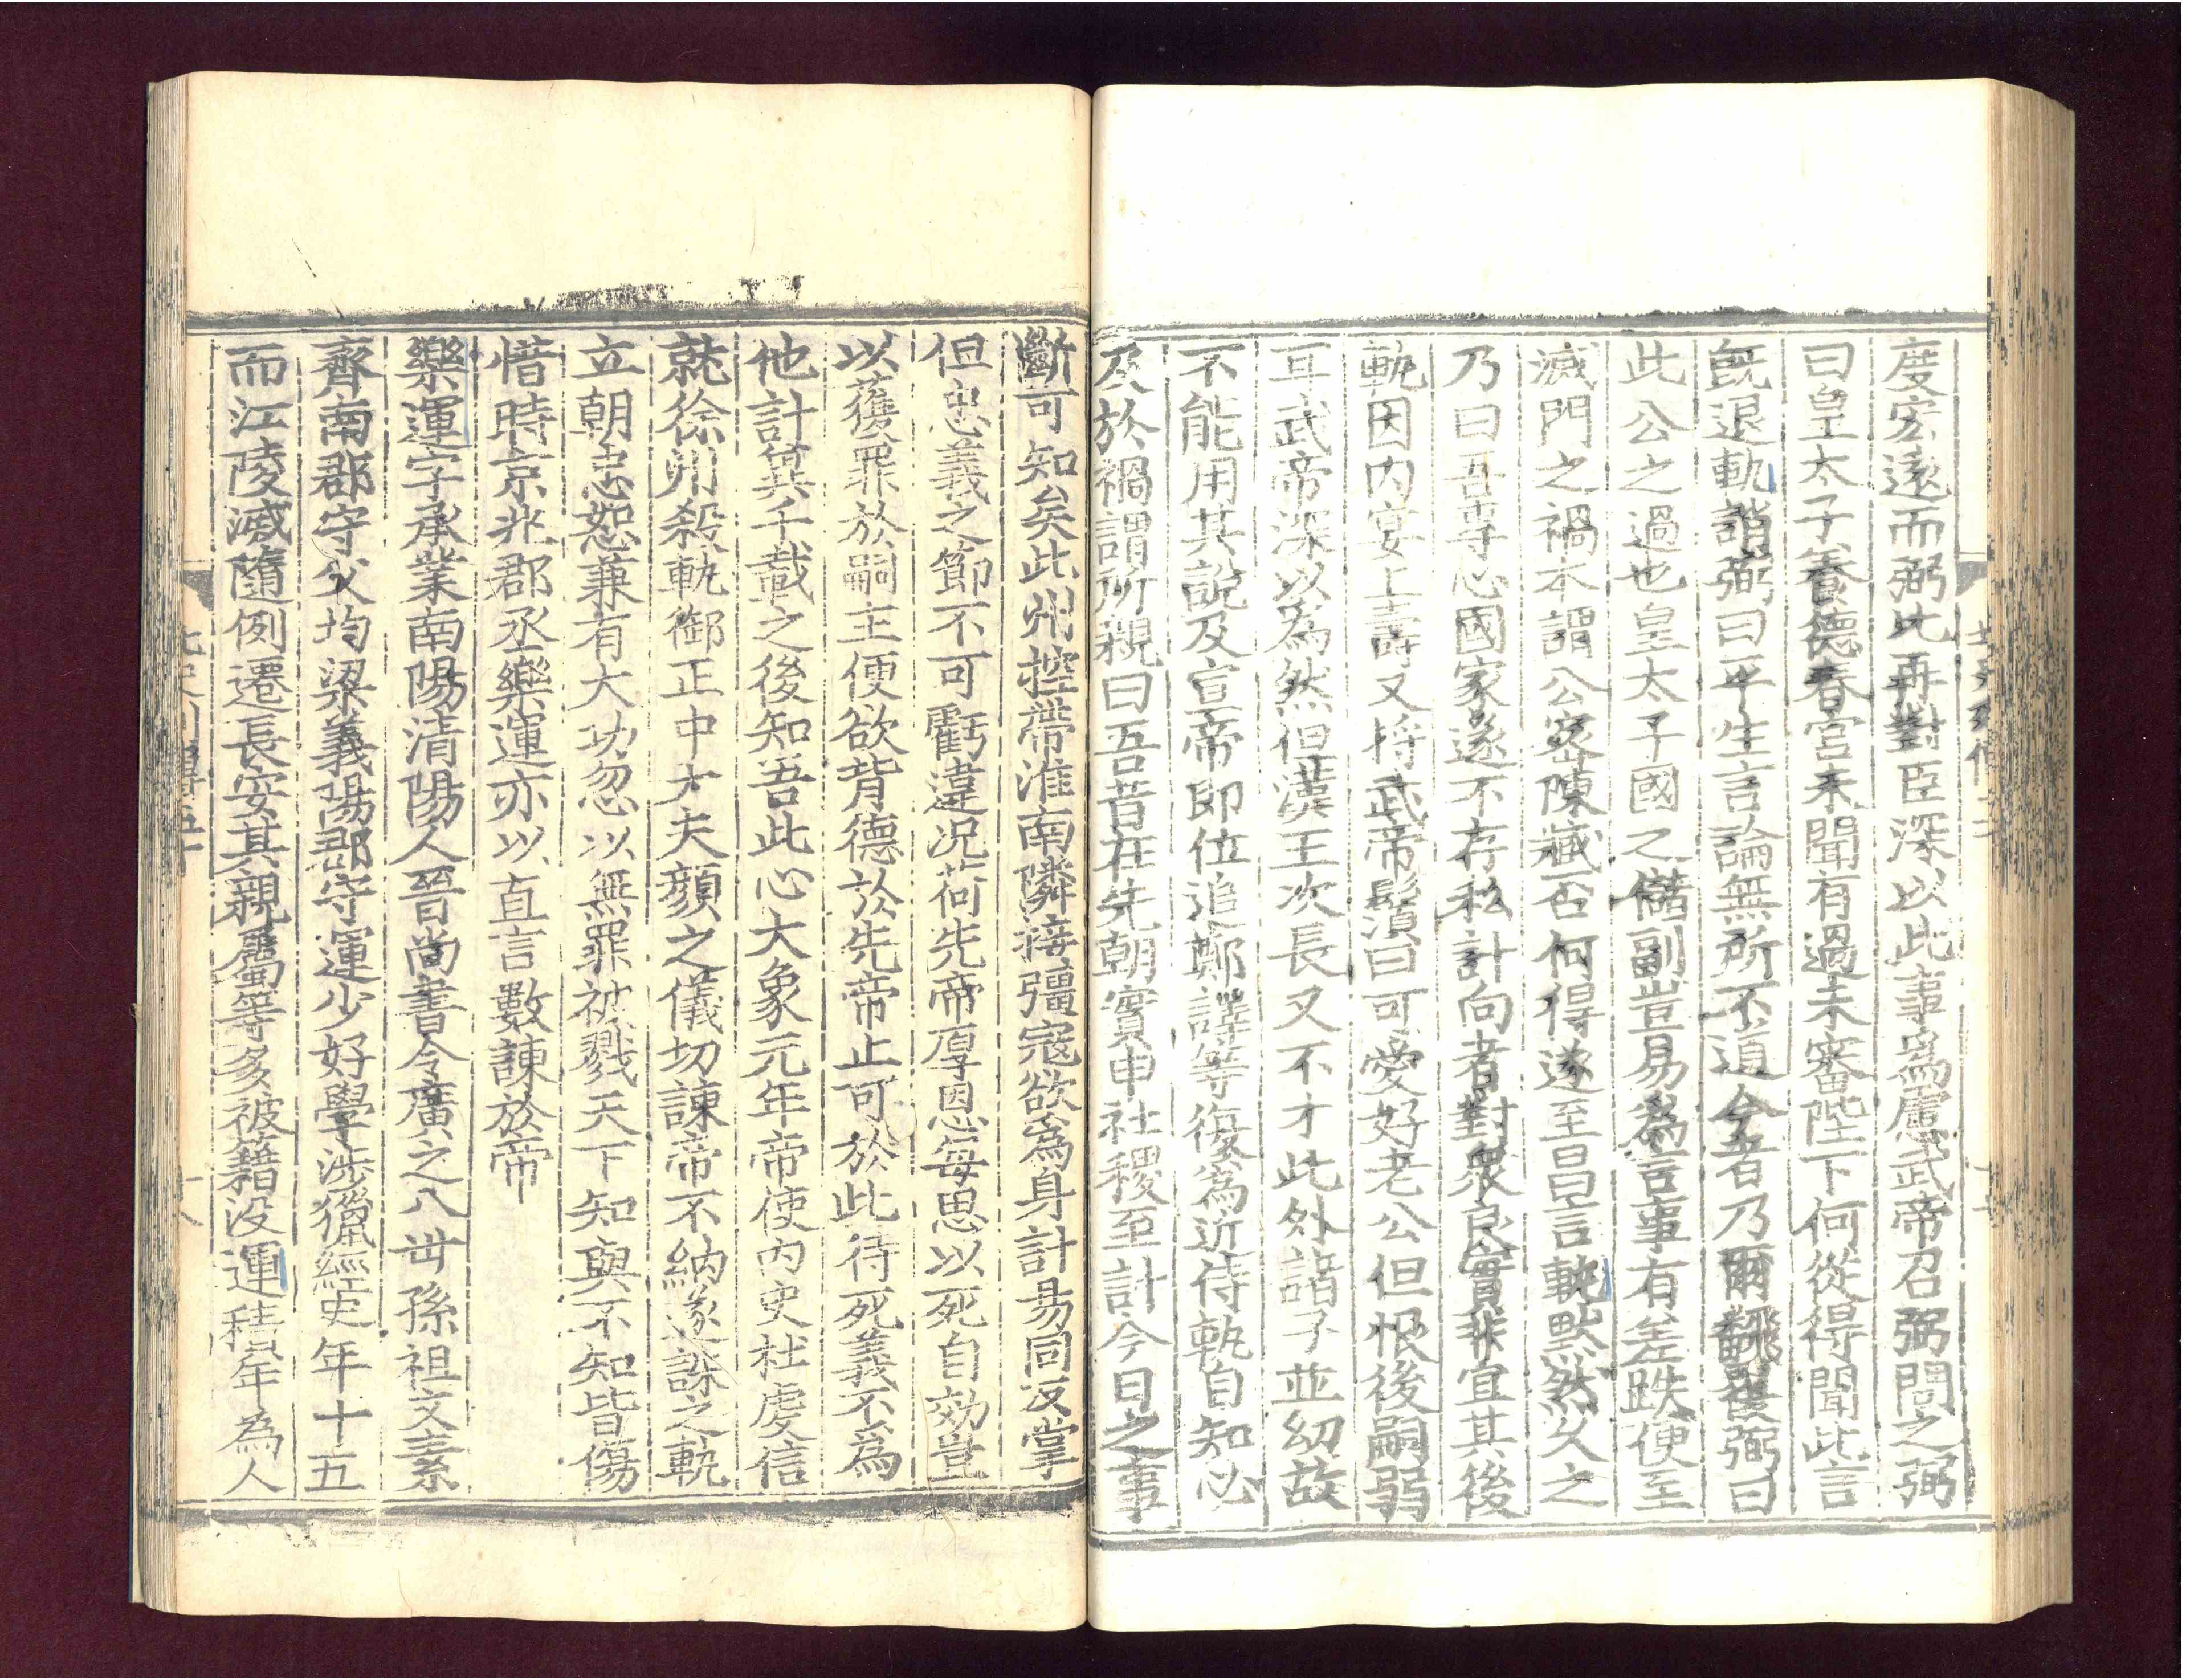 度宏遠而弼此再對臣深以此事爲慮武帝召弼問之弼
曰皇太子養德春宮未聞有過未審陛下何從得聞此言
旣退軌誚弼曰平生言論無所不道今者乃爾翻覆弼曰
此公之過也皇太子國之儲副豈易爲言事有差跌便至
滅門之禍本謂公密陳臧否何得遂至昌言軌黙然久之
乃曰吾專心國家遂不存私計向者對衆良實非宜其後
軌因内宴上壽又捋武帝鬚曰可愛好老公但恨後嗣弱
耳武帝深以爲然但漢王次長又不才此外諸子並幼故
不能用其說及宣帝卽位追鄭譯等復爲近侍軌自知必
及於禍謂所親曰吾昔在先朝實申社稷至計今日之事
斷可知矣此州控帶淮南隣接彊寇欲爲身計易同反掌
但忠義之節不可虧違况荷先帝厚恩每思以死自効豈
以獲罪於嗣主便欲背德於先帝止可於此待死義不爲
他計兾千載之後知吾此心大象元年帝使内史杜虔信
就徐州殺軌御正中大夫顔之儀切諫帝不納遂誅之軌
立朝忠恕兼有大功忽以無罪被戮天下知與不知皆傷
惜時京兆郡丞樂運亦以直言數諫於帝
樂運字承業南陽淸陽人晉尚書令廣之八世孫祖文素
齊南郡守父均梁義陽郡守運少好學涉獵經史年十五
而江陵滅隨例遷長安其親屬等多被籍没運積年爲人
北史列傳五十
十八